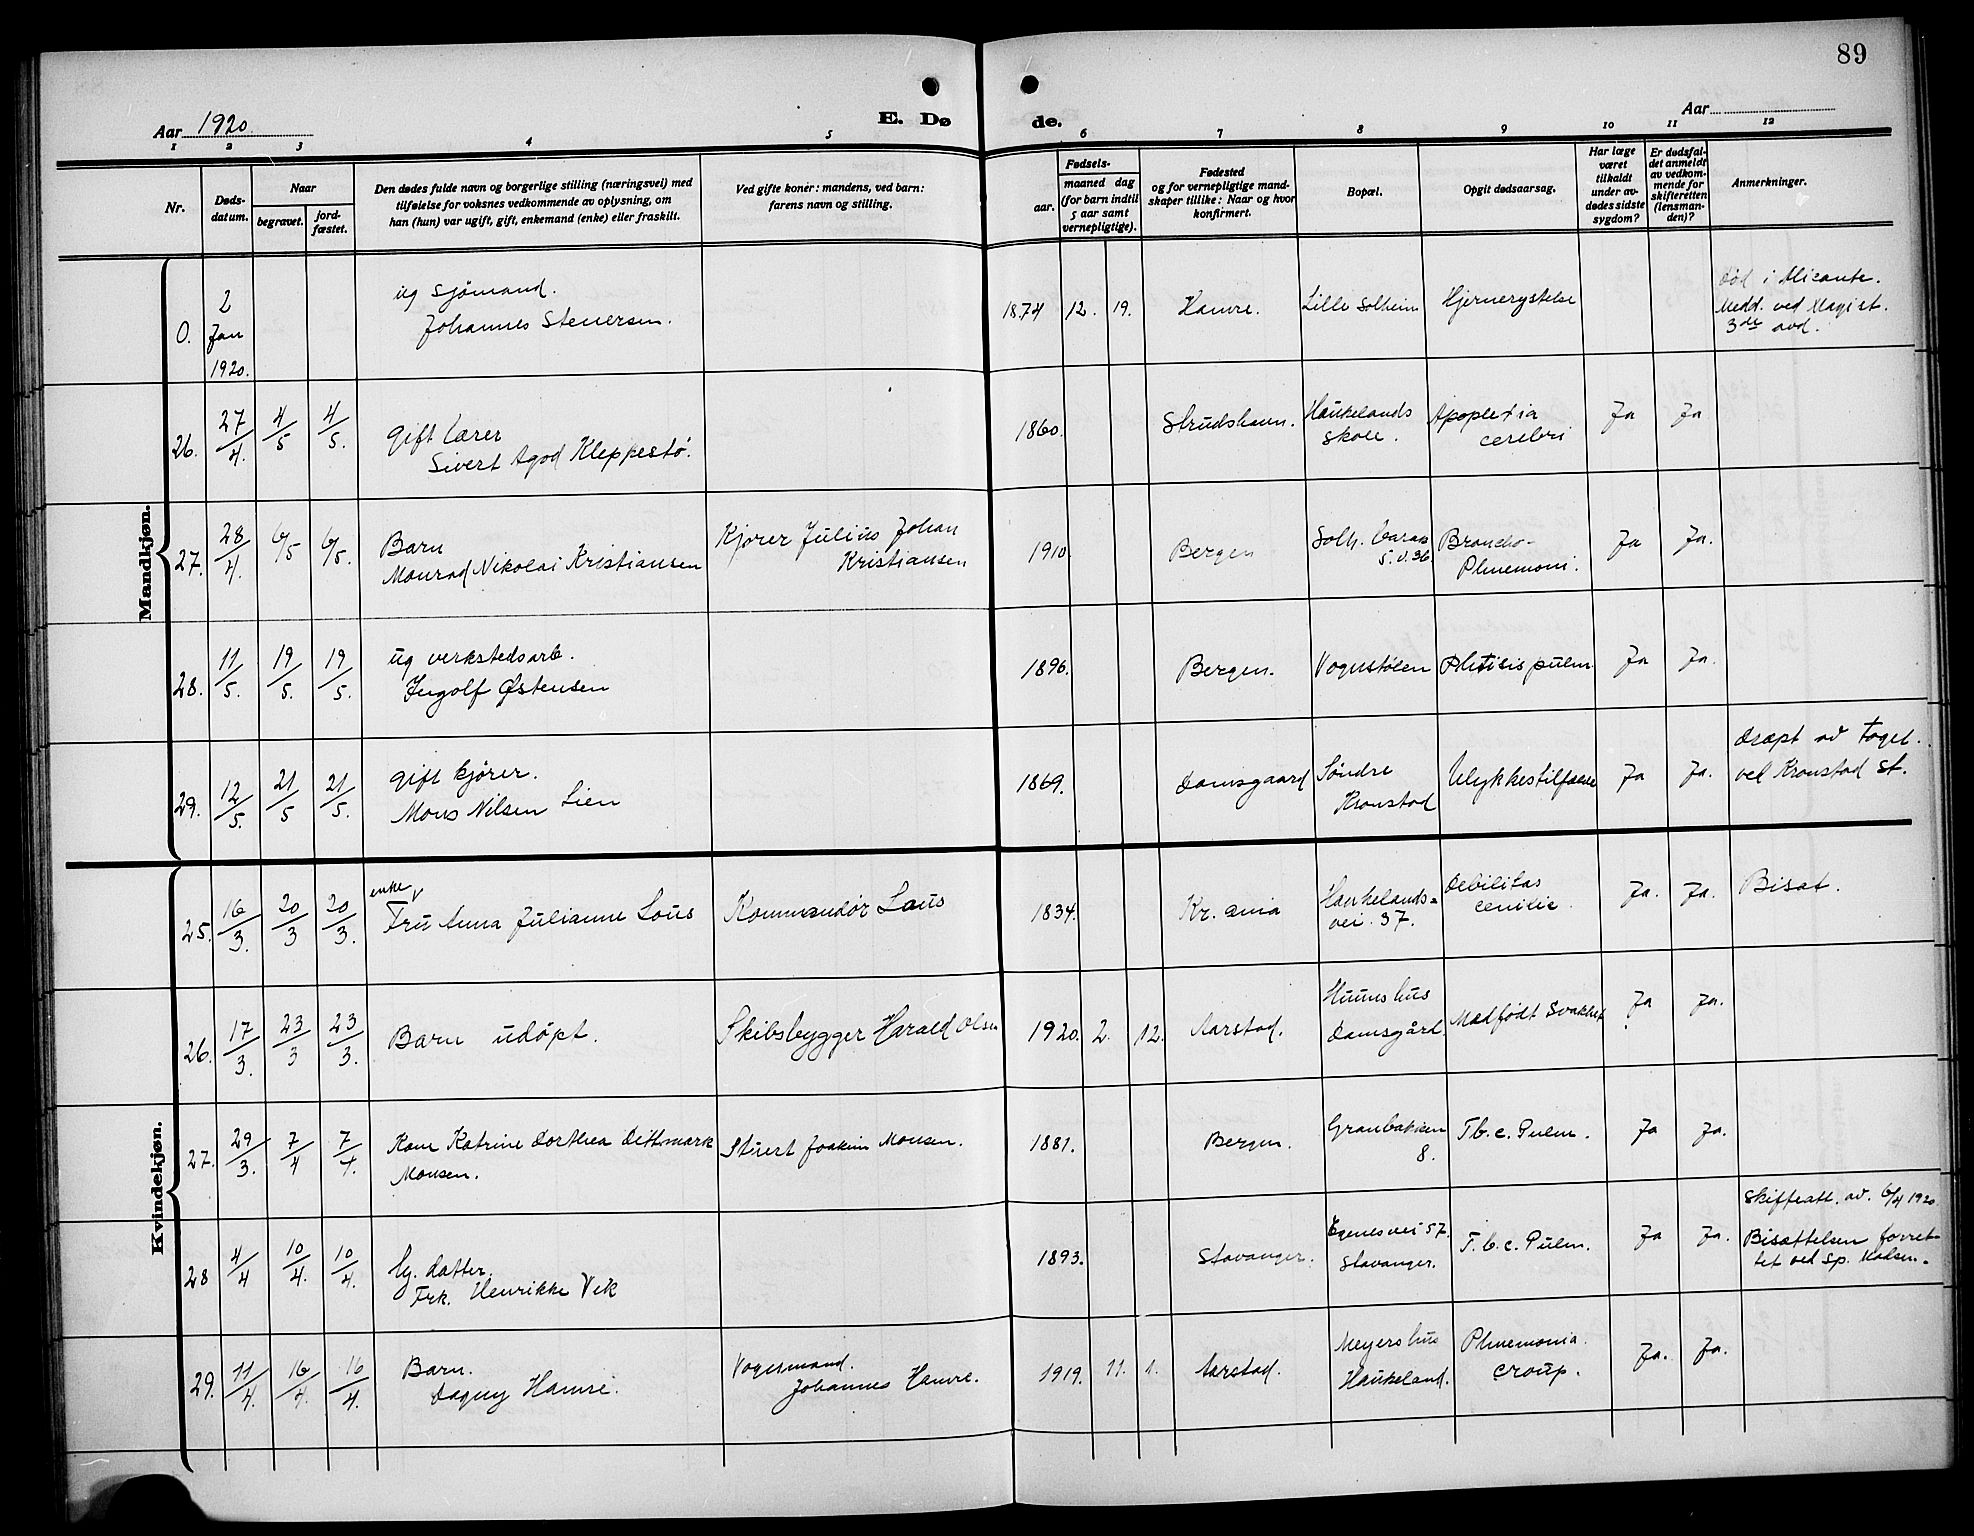 89
Aar 1920.
E. Døde.
Aar
1 2 3 4 5 6 7 8 9 10 11 12
Nr.
Døds-
datum.
Naar
begravet.
jord-
fæstet.
Den dødes fulde navn og borgerlige stilling (næringsvei) med
tilføielse for voksnes vedkommende av oplysning, om
han (hun) var ugift, gift, enkemand (enke) eller fraskilt.
Ved gifte koner: mandens, ved barn:
farens navn og stilling.
Fødsels-
aar.
maaned dag
(for barn indtil
5 aar samt
vernepligtige).
Fødested
og for vernepligtige mand-
skaper tillike: Naar og hvor
konfirmert.
Bopæl.
Opgit dødsaarsag.
Har læge
været
tilkaldt
under av-
dødes sidste
sygdom?
Er dødsfal-
det anmeldt
av vedkom-
mende for
skifteretten
(lensman-
den)?
Anmerkninger.
Mandkjøn.
0. 2 Jan 1920.
ug sjömand.
Johannes Stenersen.
1874 12. 19. Hamre. Lille Solheim Hjernerystelse
Död i Alicante.
Medd. ved Magist.
3die avd.
26. 27/4. 4/5 4/5.
gift Lærer
Sivert Agod Kleppestö.
1860. Strudshavn. Haukelands
skole.
Apoplexia
cerebri
Ja Ja
27. 28/4. 6/5 6/5.
Barn
Monrad Nikolai Kristiansen
Kjörer Julius Johan
Kristiansen
1910 Bergen Solh.
5.v.36.
Broncho-
Phnemoni.
Ja Ja.
28. 11/5. 19/5. 19/5.
ug verkstedsarb.
Ingolf Østensen
1896. Bergen. Vognstölen Phtisis pulm Ja Ja.
29. 12/5. 21/5 21/5.
gift kjörer.
Mons Nilsen Lien
1869. Damsgaard Söndre
Kronstad
Ulykkestilfælde Ja Ja.
dræpt av toget.
ved Kronstad St.
Kvindekjøn.
25. 16/3. 20/3 20/3.
enke
Fru Anna Julianne Lous Kommandör Lous
1834. Kr.ania Haukelands-
vei. 37.
Debilitas
cenilie.
Ja. Ja. Bisat.
26. 17/3. 23/3 23/3.
Barn udöpt. Skibsbygger Harald Olsen
1920. 2. 12. Aarstad. Huuns hus
Damsgård.
Medfödt Svakhet Ja Ja.
27. 29/3. 7/4 7/4.
Kone Katrine Dorthea Dithmark
Monsen.
Stuert Joakim Monsen.
1881. Bergen. Granbakken
8.
Tb.c. Pulm. Ja Ja.
28 4/4 10/4. 10/4.
Ug. datter.
Frk. Henrikke Vik
1893. Stavanger. Egenesvei 57.
Stavanger.
T.b.c. Pulm. Ja Ja.
Skifteatt. av. 6/4 1920
Bisættelsen forret-
tet ved Sp. Madsen.
29. 11/4. 16/4. 16/4.
Barn.
Dagny Hamre.
Vognmand.
Johannes Hamre.
1919. 11. 1. Aarstad. Meyers hus
Haukeland.
Phnemonia.
croup.
Ja. Ja.